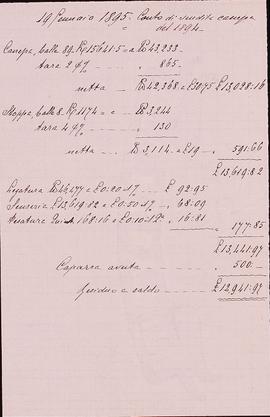 19 Gennaio 1895. Conto di vendita canepa
del 1894
Canepa, balle 89. K 15641.5 = lb 43,233
tara 2 % " 865
netta lb 42,368 a £ 30.75 £ 13,028:16
Stoppa, balle 8. K 1174 = lb 3,244
tara 4 % " 130
netta lb 3,114 a £ 19 " 591:66
£ 13,619:82
Legatura lb 46,477 a £ 0:20 % £ 92:95
Senseria £ 13,619:82 a £ 0:50 % " 68:09
Pesatura 168:16 a £ 0:10 " 16:81 " 177:85
£ 13,441:97
Caparra avuta " 500:
Residuo a saldo £ 12,941:97